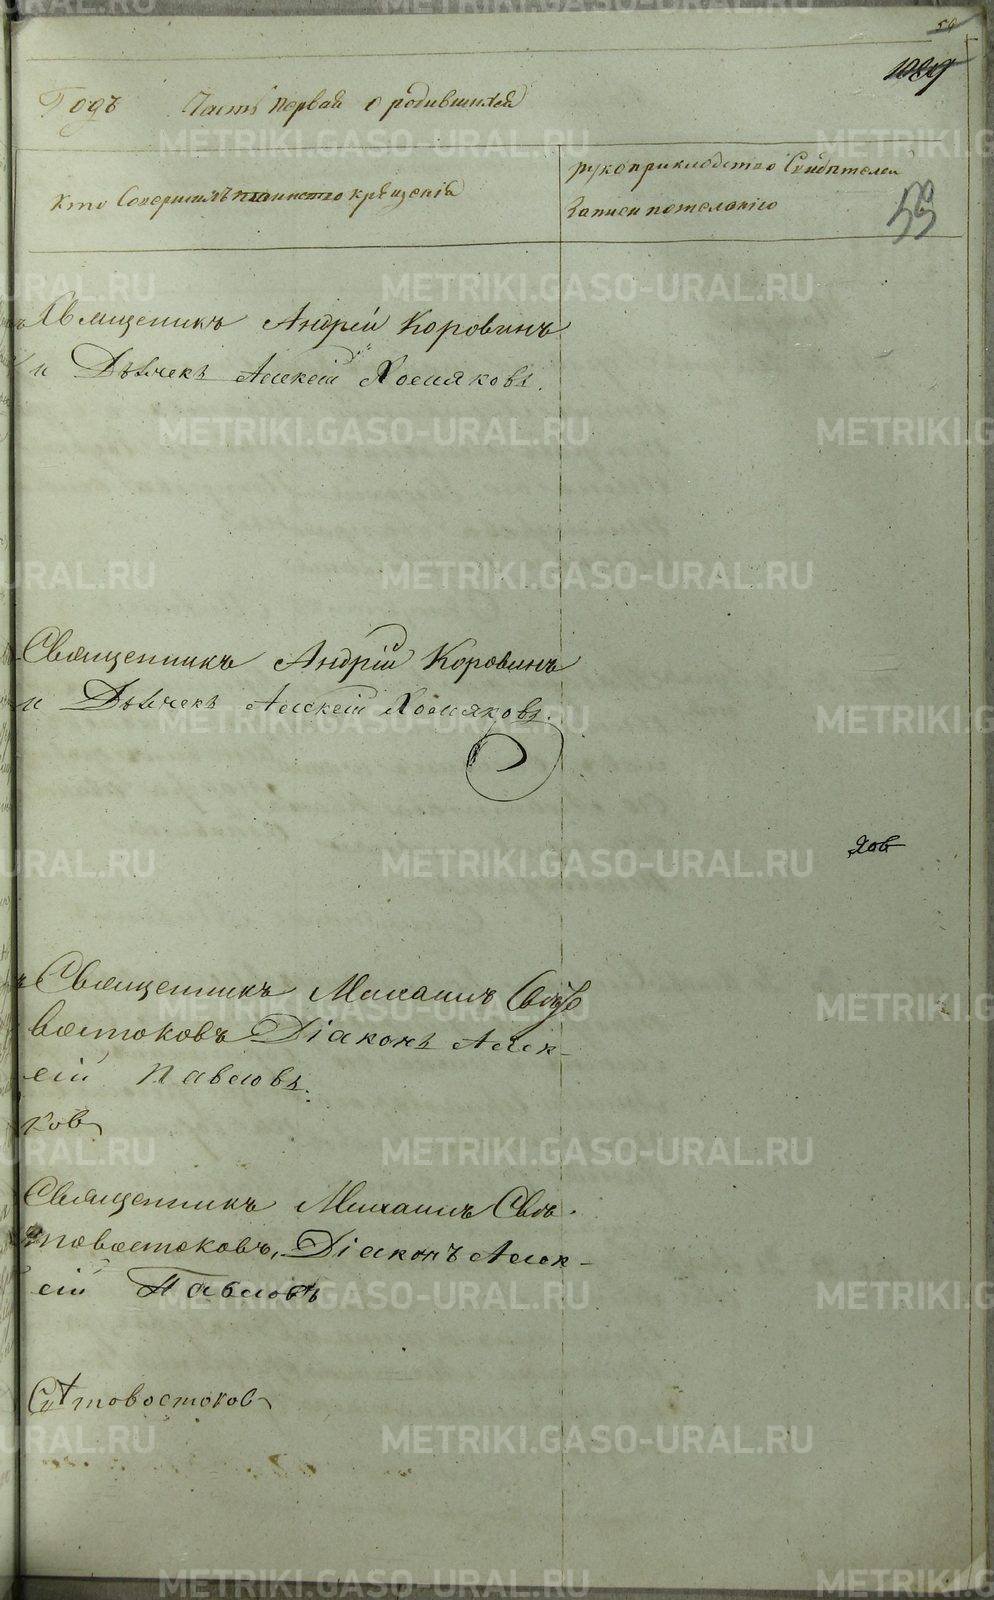 Годъ Часть первая о родившихся
Кто Совершилъ таинство крещенія
рукоприкладство Свидѣтелей
записи по желанію
59
Священикъ Андрей Коровинъ
и Дьячекъ Алексій Хомяковъ.
Священникъ Андрій Коровинъ
и Дьячекъ Алексій Хомяковъ.
Священникъ Михаилъ
востоковъ Діаконъ Алек-
сій Павловъ.
ков
Священникъ Михаилъ Свѣ-
товостоковъ, Діаконъ Алек-
сій Павловъ
товостоков
METRIKI.GASO-URAL.RU